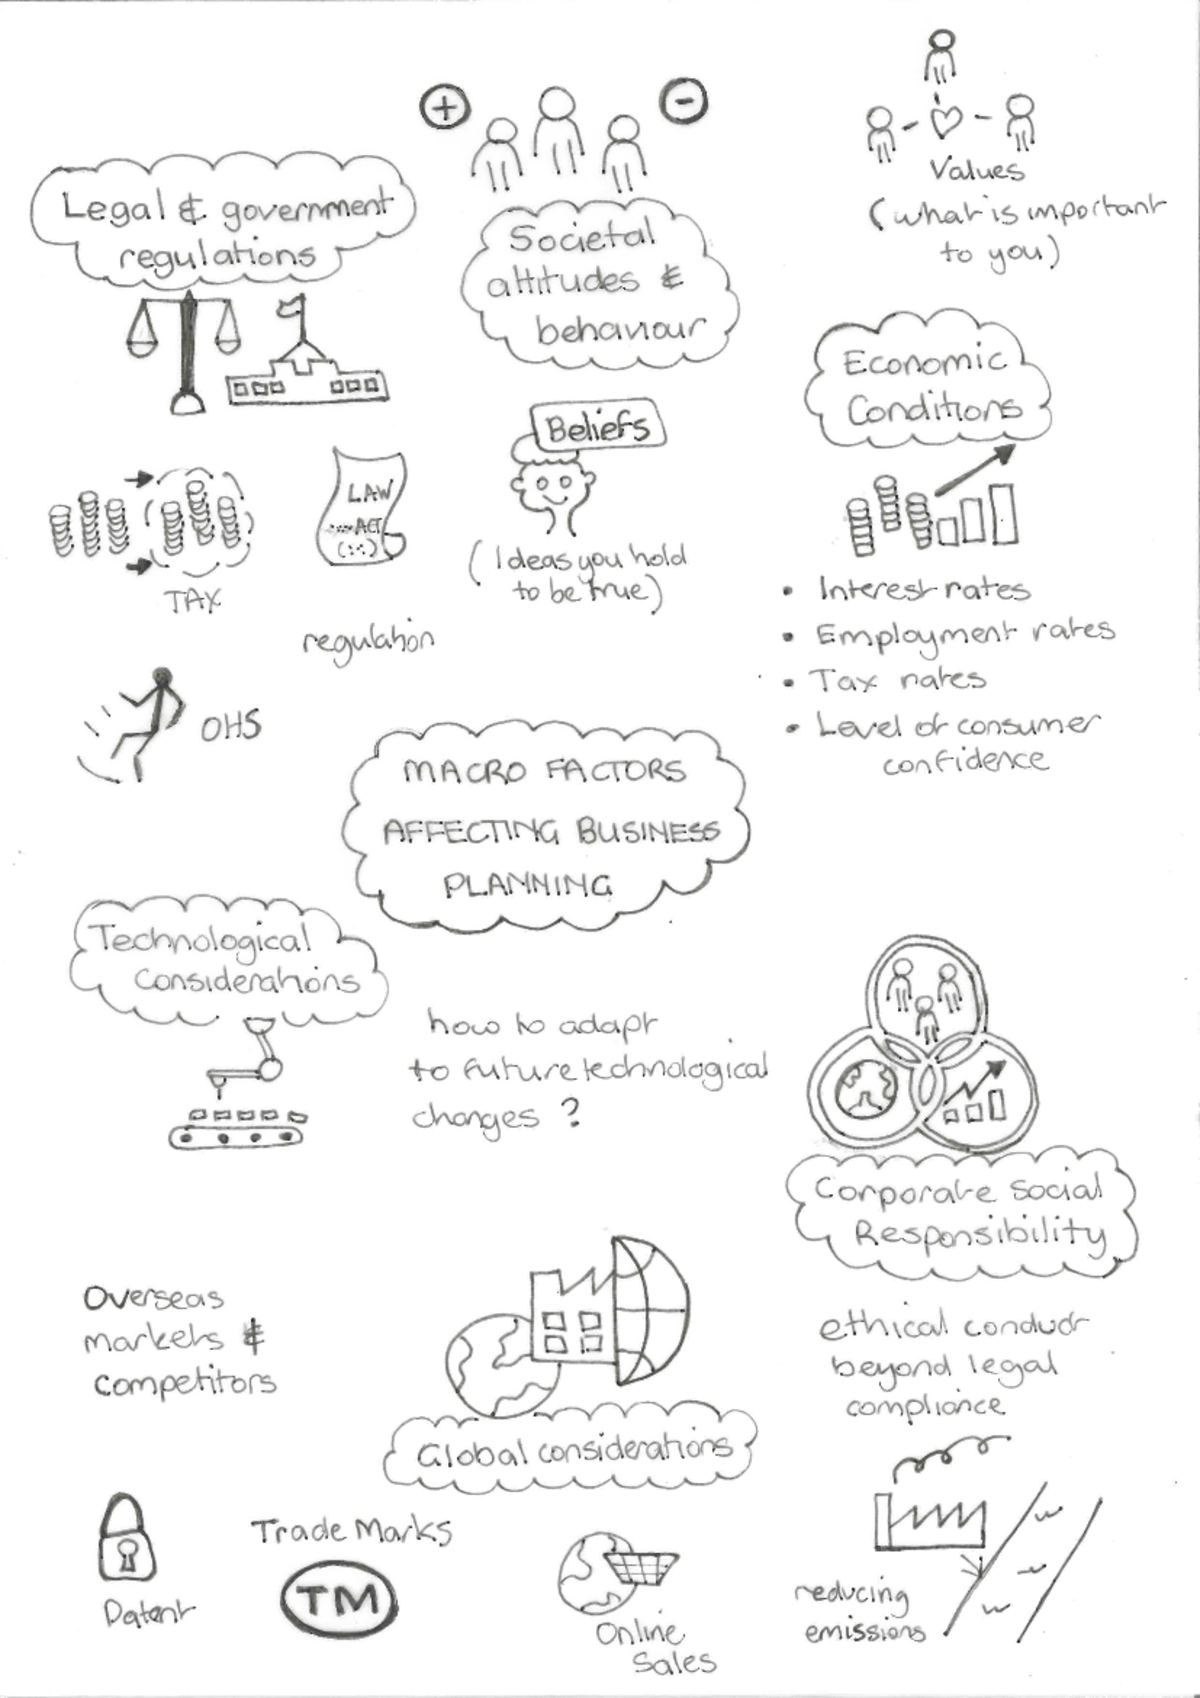 Values
(what is important
to you)
Legal & government
regulations
Societal
attitudes &
behaviour
Economic
Conditions
Beliefs
(Ideas you hold
to be true)
LAW
ACT
TAX
regulation
OHS
• Interest rates
• Employment rates
• Tax rates
• Level of consumer
confidence
MACRO FACTORS
AFFECTING BUSINESS
PLANNING
Technological
Considerations
how to adapt
to future technological
changes ?
Corporate Social
Responsibility
ethical conduct
beyond legal
compliance
Overseas
markets &
competitors
Global considerations
Patent
Trade Marks
TM
Online
Sales
reducing
emissions